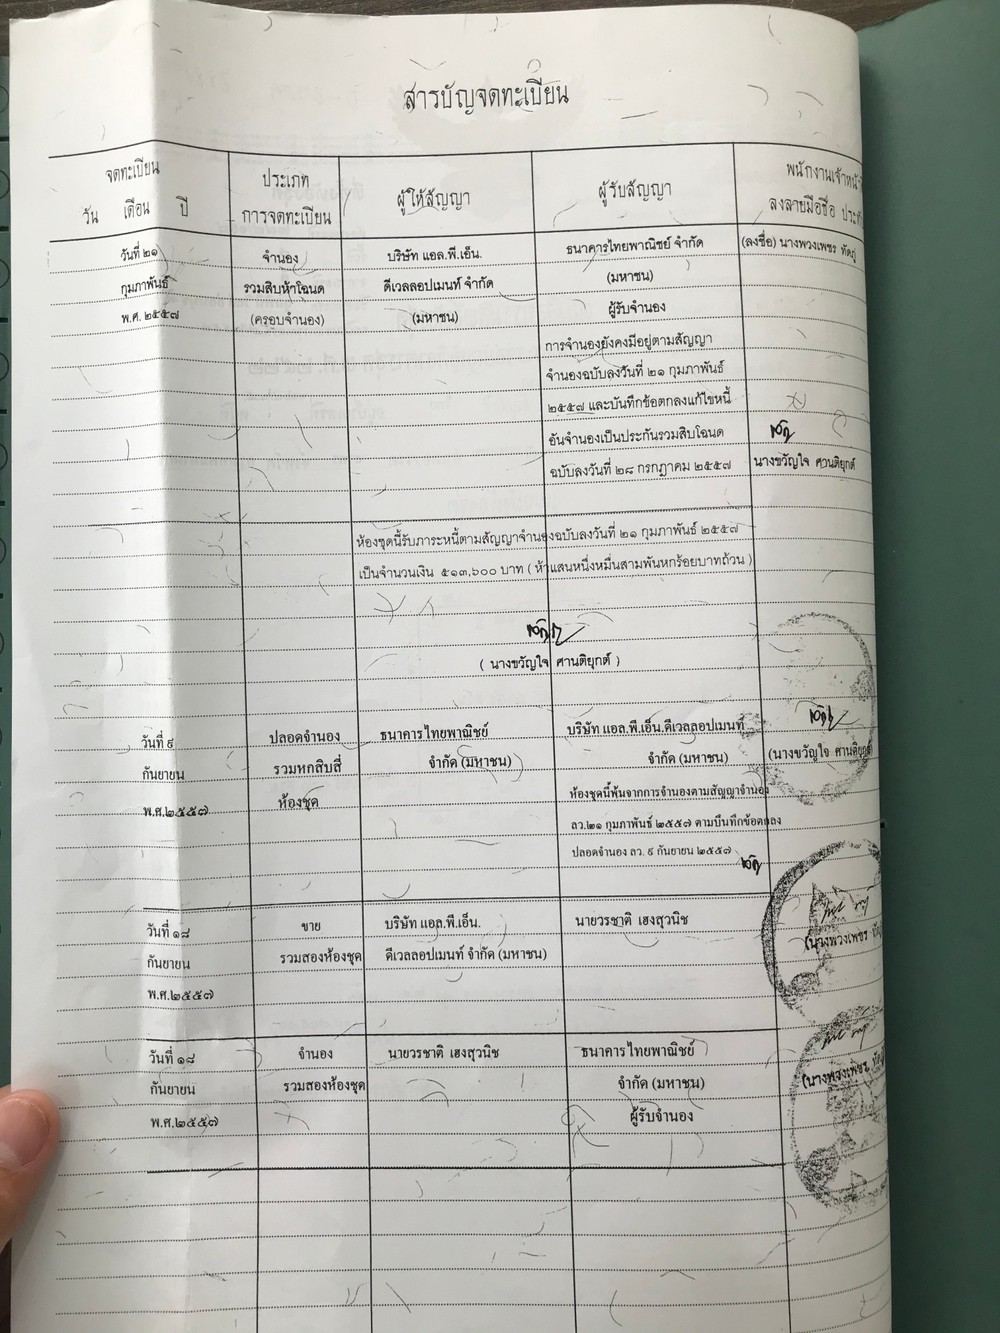 สารบัญจดทะเบียน
จดทะเบียน
วัน เดือน ปี
ประเภท
การจดทะเบียน
ผู้ให้สัญญา
ผู้รับสัญญา
พนักงานเจ้าหน้า
ลงลายมือชื่อ
วันที่ ๒๑
กุมภาพันธ์
พ.ศ. ๒๕๕๗
จำนอง
รวมสิบห้าโฉนด
(ครอบจำนอง)
บริษัท แอล.พี.เอ็น.
ดีเวลลอปเมนท์ จำกัด
(มหาชน)
ธนาคารไทยพาณิชย์ จำกัด
(มหาชน)
ผู้รับจำนอง
การจำนองยังคงมีอยู่ตามสัญญา
จำนองฉบับลงวันที่ ๒๑ กุมภาพันธ์
๒๕๕๗ และบันทึกข้อตกลงแก้ไขหนี้
อันจำนองเป็นประกันรวมสิบโฉนด
ฉบับลงวันที่ ๒๘ กรกฎาคม ๒๕๕๗
(ลงชื่อ) นางพวงเพชร
นางขวัญใจ ศานติยุกต์
ห้องชุดนี้รับภาระหนี้ตามสัญญาจำนองฉบับลงวันที่ ๒๑ กุมภาพันธ์ ๒๕๕๗
เป็นจำนวนเงิน ๕๑๓,๖๐๐ บาท ( ห้าแสนหนึ่งหมื่นสามพันหกร้อยบาทถ้วน )
( นางขวัญใจ ศานติยุกต์ )
วันที่ ๙
กันยายน
พ.ศ.๒๕๕๗
ปลอดจำนอง
รวมหกสิบสี่
ห้องชุด
ธนาคารไทยพาณิชย์
จำกัด (มหาชน)
บริษัท แอล.พี.เอ็น.ดีเวลลอปเมนท์
จำกัด (มหาชน)
ห้องชุดนี้พ้นจากการจำนองตามสัญญาจำนอง
ลว.๒๑ กุมภาพันธ์ ๒๕๕๗ ตามบันทึกข้อตกลง
ปลอดจำนอง ลว. ๙ กันยายน ๒๕๕๗
(นางขวัญใจ ศานติยุกต์)
วันที่ ๑๘
กันยายน
พ.ศ.๒๕๕๗
ขาย
รวมสองห้องชุด
บริษัท แอล.พี.เอ็น.
ดีเวลลอปเมนท์ จำกัด (มหาชน)
นายวรชาติ เฮงสุวนิช
(นางพวงเพชร
วันที่ ๑๘
กันยายน
พ.ศ.๒๕๕๗
จำนอง
รวมสองห้องชุด
นายวรชาติ เฮงสุวนิช
ธนาคารไทยพาณิชย์
จำกัด (มหาชน)
ผู้รับจำนอง
(นางพวงเพชร